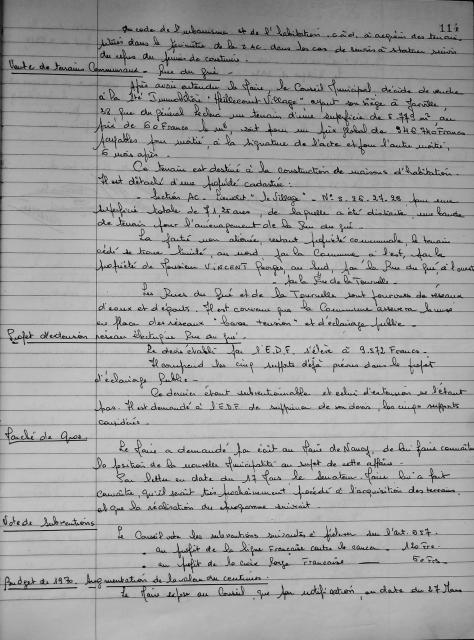 114
du code de l'urbanisme et de l'habitation, c.à.d. d'acquérir des terrains
situés dans le périmètre de la ZAC dans les cas de sursis à statuer suivis
du refus du permis de construire.
Vente de terrains Communaux - Rue du Gué -
Après avoir entendu le Maire, le Conseil Municipal, décide de vendre
à la Sté Immobilière "Heillecourt Village" ayant son siège à Jarville,
38, rue du Général Leclerc un terrain d'une superficie de 5.779 m², au
prix de 60 Francs le m², soit pour un prix global de 346.740 Francs
payables pour moitié, à la signature de l'acte et pour l'autre moitié,
6 mois après.
Ce terrain est destiné à la construction de maisons d'habitation.
Il est détaché d'une propriété cadastrée :
- Section AC - Lieudit "le Village" - N° 26.27.28 pour une
superficie totale de 71 ares, de laquelle a été distraite une bande
de terrain pour l'aménagement de la Rue du Gué.
La partie non aliénée, restant propriété communale, le terrain
cédé se trouve limité, au nord par la Commune à l'est, par la
propriété de Monsieur VINCENT Georges, au Sud, par la Rue du Gué à l'ouest
par la Rue de la Tournelle -
Les Rues du Gué et de la Tournelle sont pourvues de réseaux
d'eaux et d'égouts. Il est convenu que la Commune assurera la mise
en place des réseaux "basse tension" et d'éclairage public -
Projet d'extension réseau électrique Rue du Gué -
Le devis établi par l'E.D.F. s'élève à 9.572 Francs -
Il comprend les cinq supports déjà prévus dans le projet
d'éclairage Public -
Ce dernier étant subventionnable et celui d'extension ne l'étant
pas. Il est demandé à l'E.D.F de supprimer de son devis, les cinq supports
considérés.
Marché de Gros
Le Maire a demandé par écrit au Maire de Nancy, de lui faire connaître
la position de la nouvelle Municipalité au sujet de cette affaire -
Par lettre en date du 17 Mars le Sénateur-Maire lui a fait
connaître, qu'il serait très prochainement procédé à l'acquisition des terrains,
et que la réalisation du programme suivrait.
Vote de subventions
Le Conseil vote les subventions suivantes à prélever sur l'art. 657.
- au profit de la ligue Française contre le cancer - 120 Frs.
- au profit de la croix Rouge Française - 50 Frs.
Budget de 1970. Augmentation de la valeur du centime -
Le Maire expose au Conseil, que par notification, en date du 27 Mars